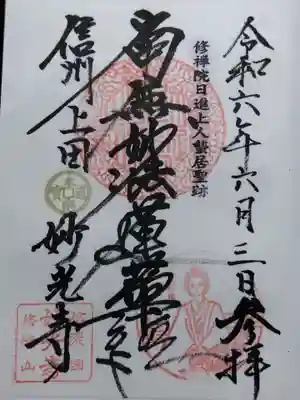 令和六年六月三日参拝
修禅院日進上人蟄居聖跡
南無妙法蓮華経
信州上田
妙光寺